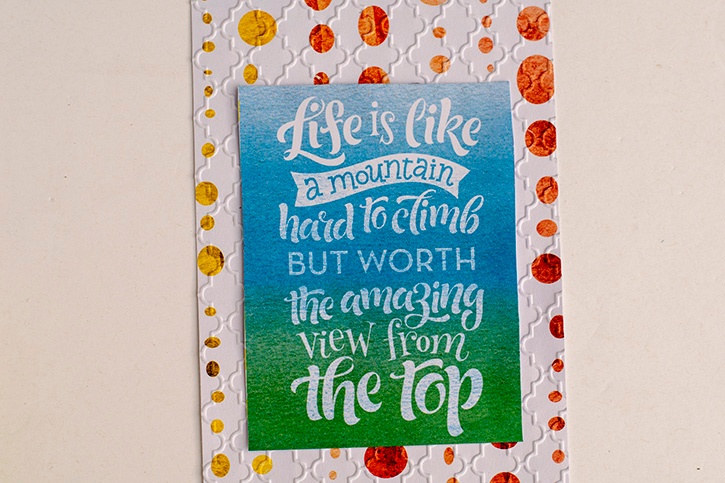 Life is like
a mountain
hard to climb
BUT WORTH
the amazing
view from
the top